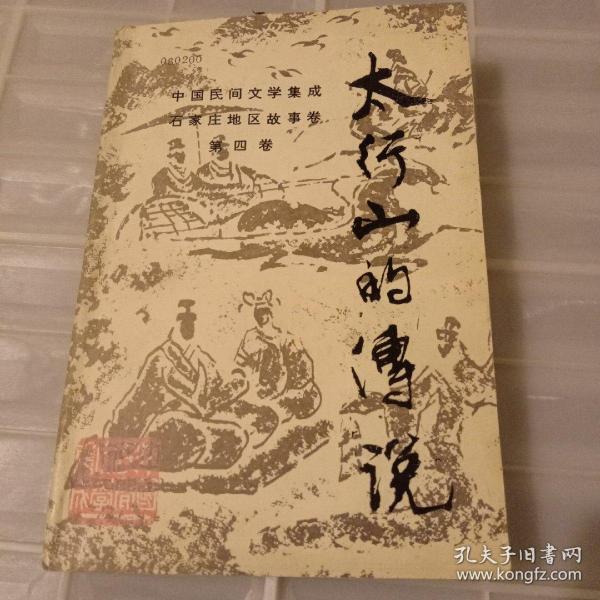 030200
中国民间文学集成
石家庄地区故事卷
第四卷
太行山的傳说
孔夫子旧书网
www.kongfz.com